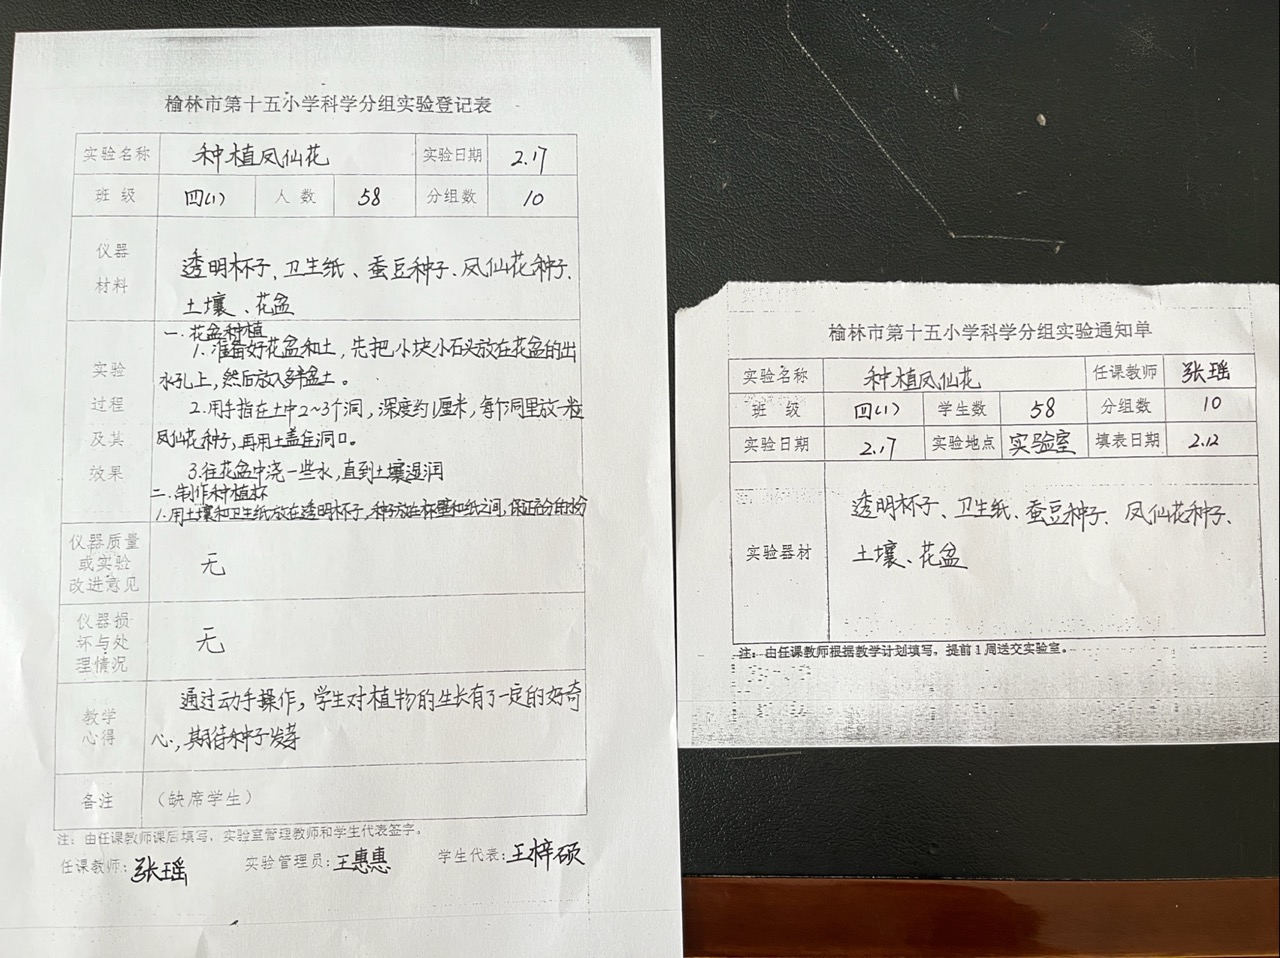 榆林市第十五小学科学分组实验登记表
实验名称 种植凤仙花 实验日期 2.17
班 级 四(1) 人 数 58 分组数 10
仪器
材料
透明杯子、卫生纸、蚕豆种子、凤仙花种子、
土壤、花盆
实验
过程
及其
效果
一、花盆种植
1、准备好花盆和土，先把小块小石头放在花盆的出
水孔上，然后放入多半盆土。
2.用手指在土中2~3个洞，深度约1厘米，每个洞里放一粒
凤仙花种子，再用土盖住洞口。
3.往花盆中浇一些水，直到土壤湿润
二、制作种植杯
1.用土壤和卫生纸放在透明杯子，种子放在杯壁和纸之间，保证充分的水份
仪器质量
或实验
改进意见
无
仪器损
坏与处
理情况
无
教学
心得
通过动手操作，学生对植物的生长有了一定的好奇
心，期待种子发芽
备注 （缺席学生）
注：由任课教师课后填写，实验室管理教师和学生代表签字。
任课教师：张瑶 实验管理员：王惠惠 学生代表：王梓硕
榆林市第十五小学科学分组实验通知单
实验名称 种植凤仙花 任课教师 张瑶
班 级 四(1) 学生数 58 分组数 10
实验日期 2.17 实验地点 实验室 填表日期 2.12
实验器材
透明杯子、卫生纸、蚕豆种子、凤仙花种子、
土壤、花盆
注：由任课教师根据教学计划填写，提前1周送交实验室。